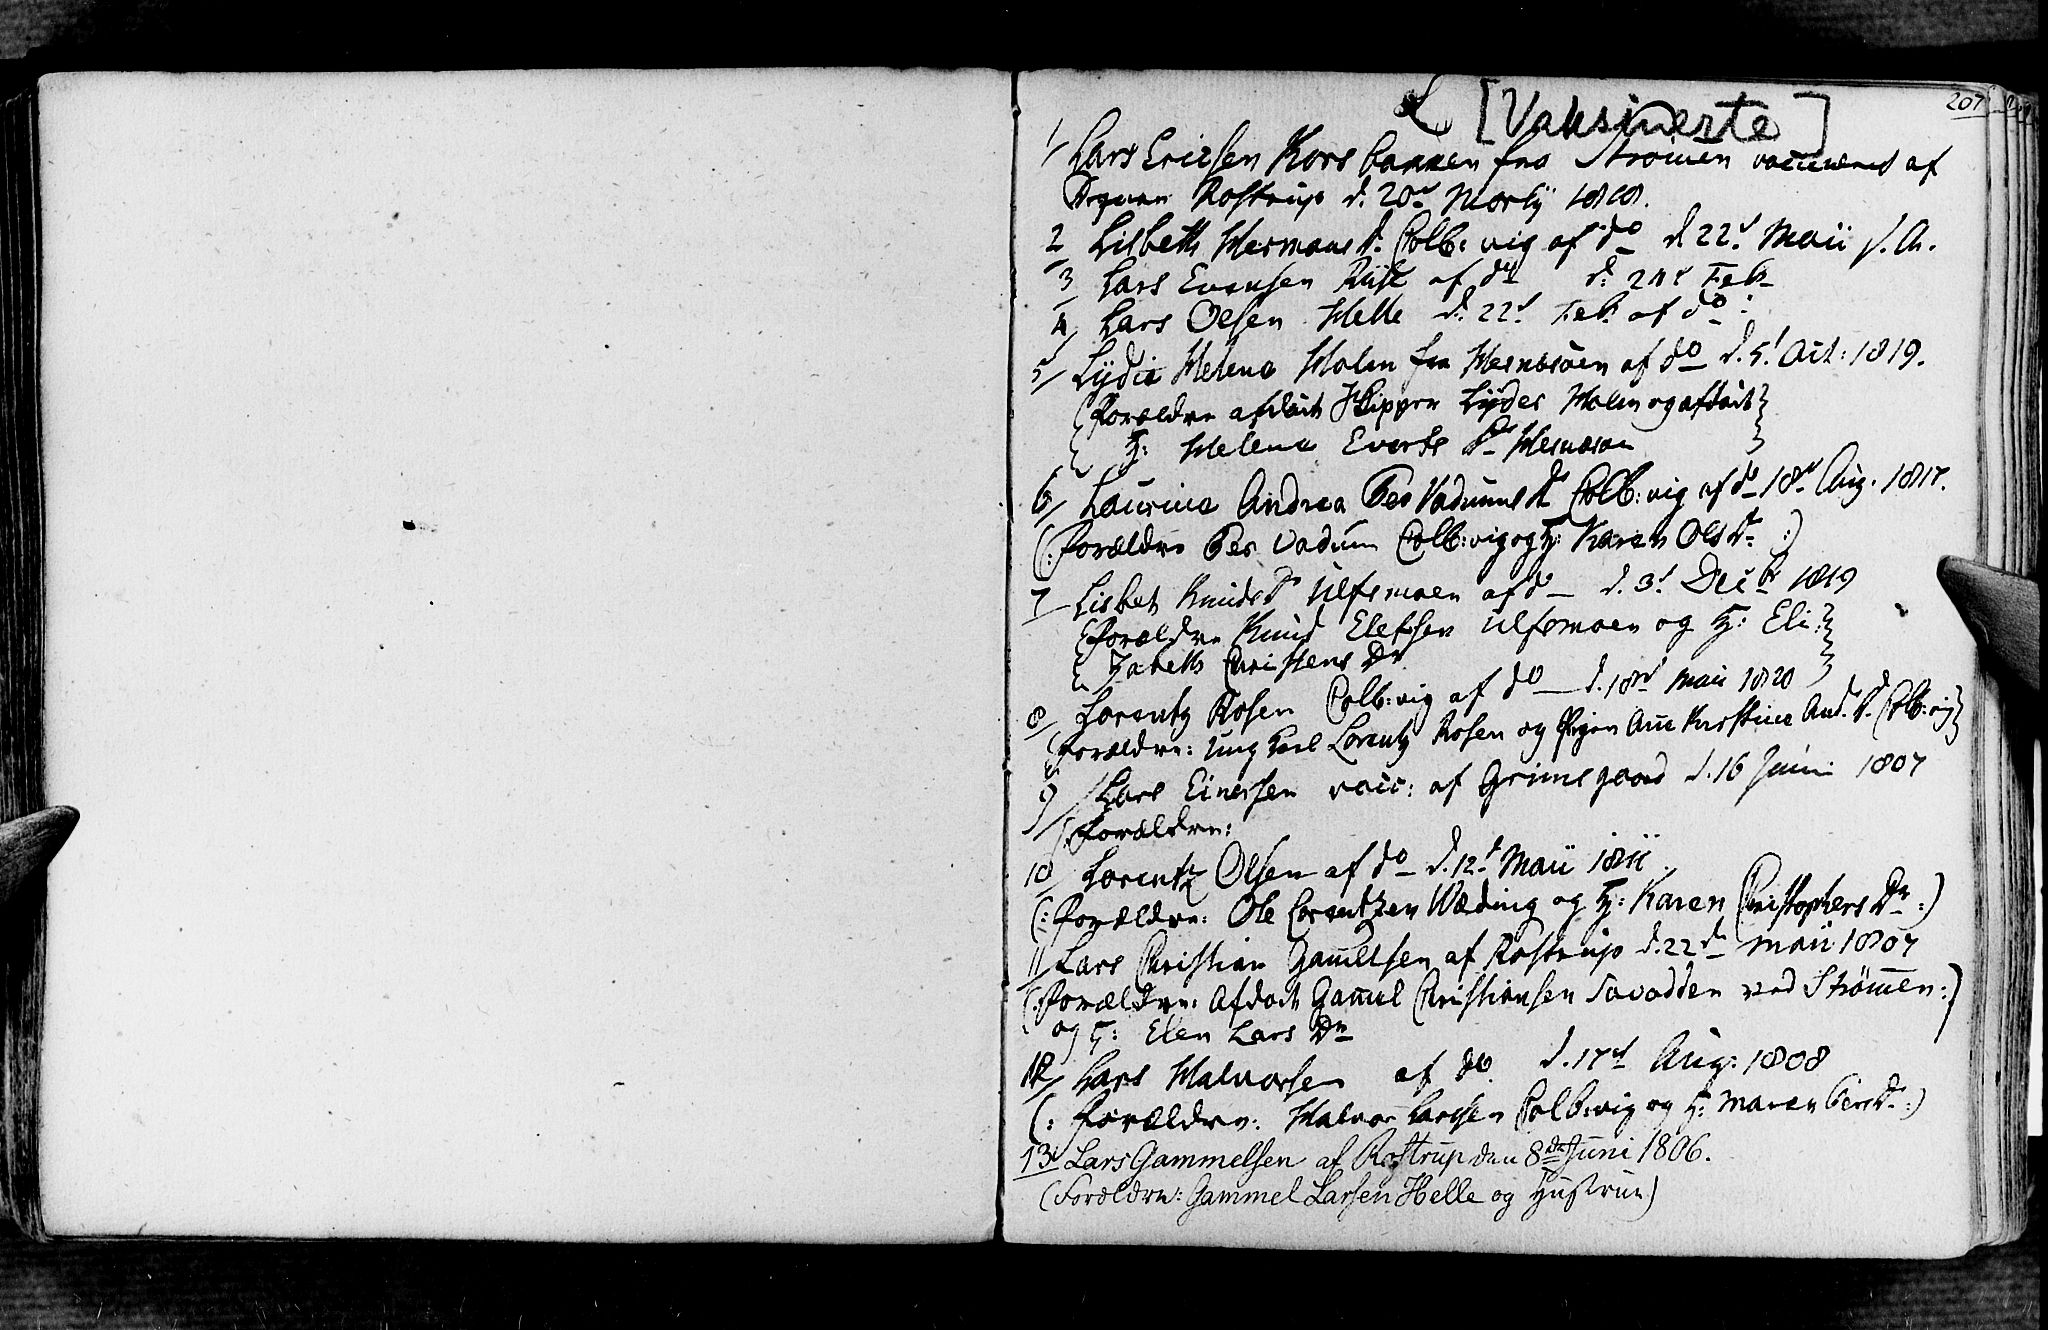 207
L [Vaksinerte]
1/ Lars Ericksen Korsbakken fra Strömen vaccineret af
Rostrup d. 28d Martij 1818.
2 Lisbeth Hermans D. Colb:vig af do d 22d Maii s. A.
3 Lars Evensen af do d: 24d Feb
4/ Lars Oelsen Helle d. 22d Feb af do:
5/ Lydia Helena Holm fra Hesnesöen af do d. 5t Oct: 1819.
(Forældre afdöde Skipper Lyder Holm og afdöde
H: Helena Everts Dr Hesnesöen
6/ Laurina Andrea Per Vadums Dr Colb:vig af do 18d Aug. 1817.
(: Forældre Per Vadum Colb:vig og H: Karen Ols Dr :)
7 Lisbet Knuds Dr Ulfsmoen af do d. 3d Decbr 1819
(Forældre Knud Elefsen Ulfsmoen og H: Eli:
zabeth Christens Dr
8/ Lorentz Rosen Colb:vig af do d. 18d Maii 1820
(Forældre: Ung Karl Lorentz Rosen og Pigen Ane Kirstine And. D. Colb:vig)
9/ Lars Einersen vacc: af Grimsgaard d. 16 Junii 1807
(: Forældre:
10/ Lorentz Olsen af do d. 12d Maii 1811
(: Forældre: Ole Lorentzen Wæding og H: Karen Christophers Dr :)
11/ Lars Christian Gamelsen af Rostrup d. 22de Maii 1807
(: Forældre: Afdöde Gam̅el Christiansen Savodden ved Ström̅en :)
og H: Elen Lars Dr
12/ Lars Halvorsen af do d. 17d Aug: 1808
(: Forældre: Halvor Larsen Colb:vig og H: Maren Pers Dr :)
13/ Lars Gammelsen af Rostrup den 8de Juni 1806.
(Forældre: Gammel Larsen Helle og Hustrue)